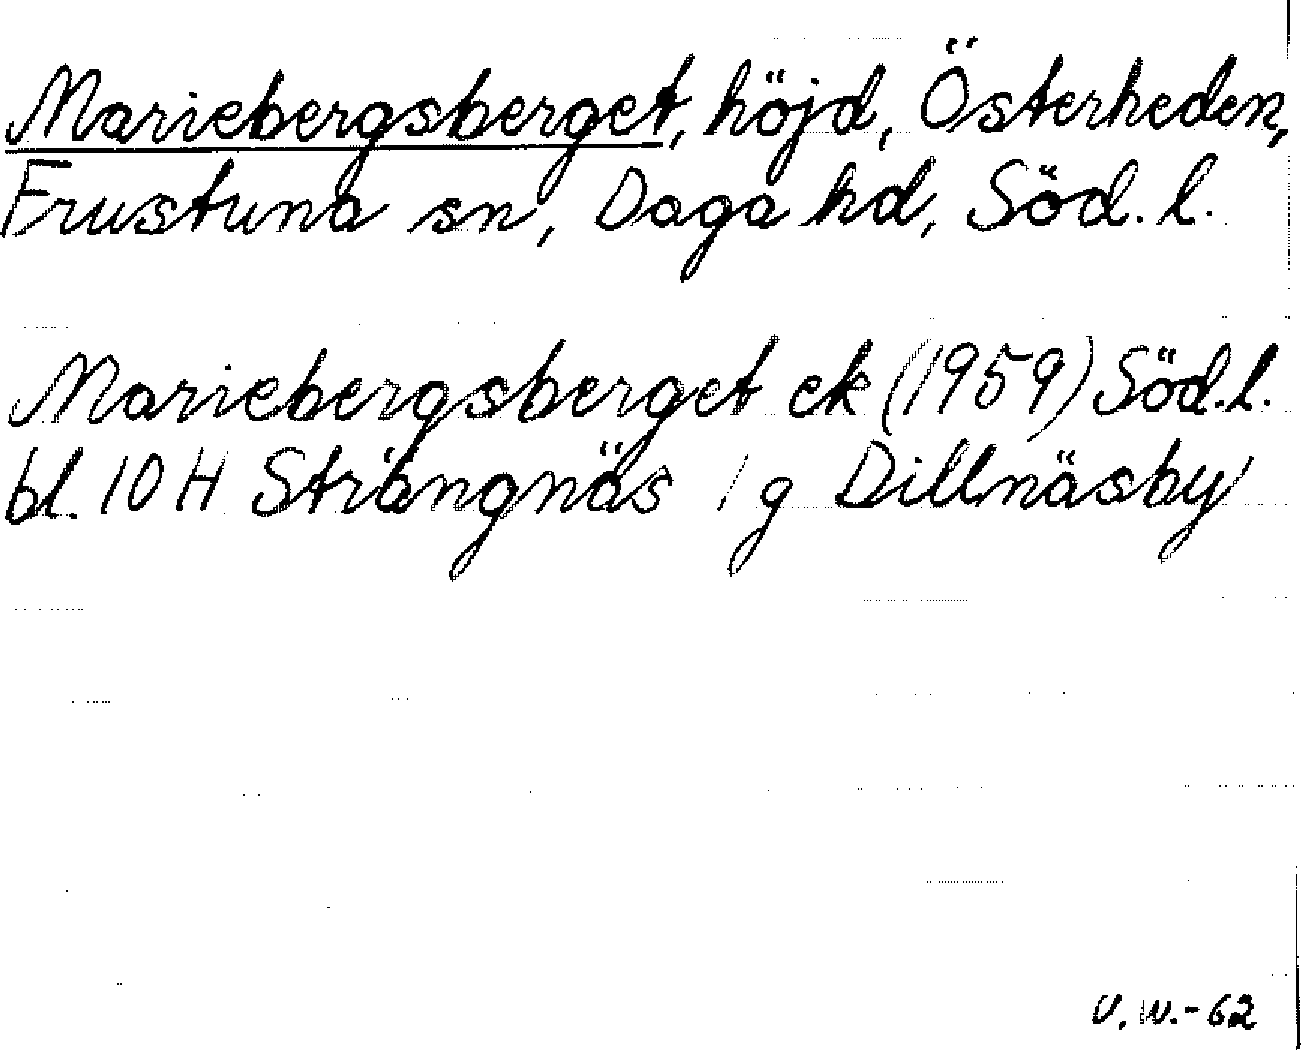 Mariebergsberget, höjd, Österheden,
Frustuna sn, Daga hd, Söd. l.
Mariebergsberget ek (1959) Söd.l.
bl. 10 H Strängnäs 1 g Dillnäsby
V.W.-62